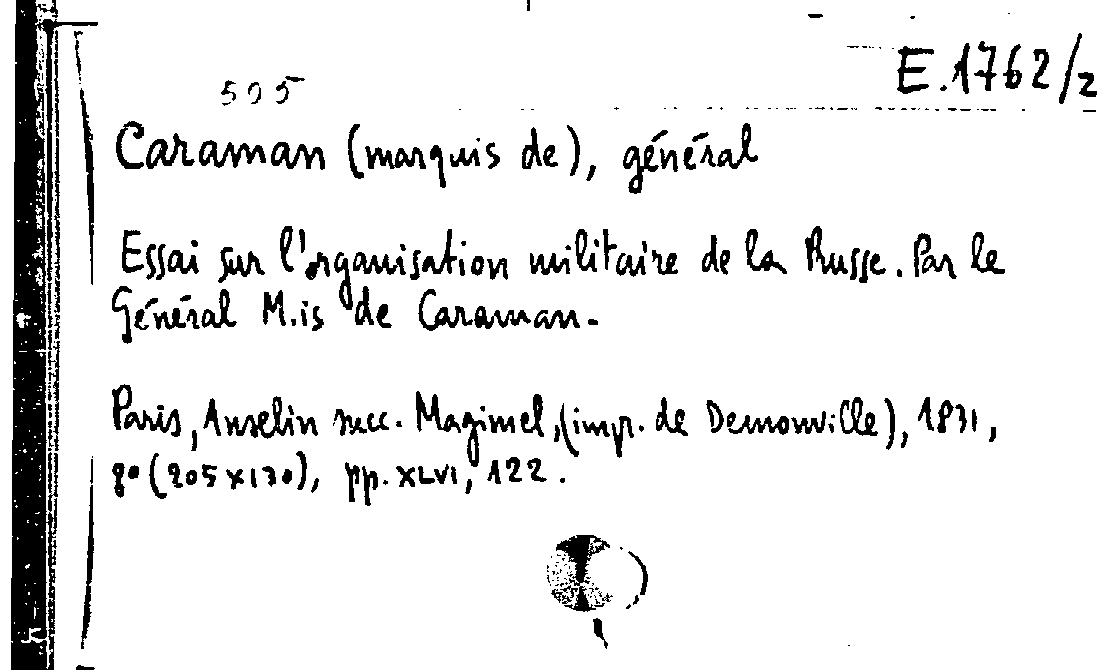 E.1762/2
505
Caraman (marquis de), général
Essai sur l'organisation militaire de la Russe. Par le
Général M.is de Caraman.
Paris, Anselin succ. Magimel, (impr. de Demonville), 1831,
8° (205x130), pp. XLVI, 122.